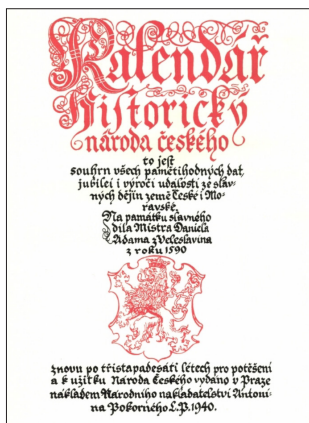 Kalendář
Historický
národa českého
to jest
souhrn všech pamětihodných dat,
jubileí i výročí událostí ze slav-
ných dějin země České i Mo-
ravské.
Na památku slavného
díla Mistra Daniela
Adama z Veleslavína
z roku 1590
znovu po třistapadesáti létech pro potěšení
a k užitku Národa Českého vydáno v Praze
nákladem Národního nakladatelství Antoní-
na Pokorného L.P. 1940.